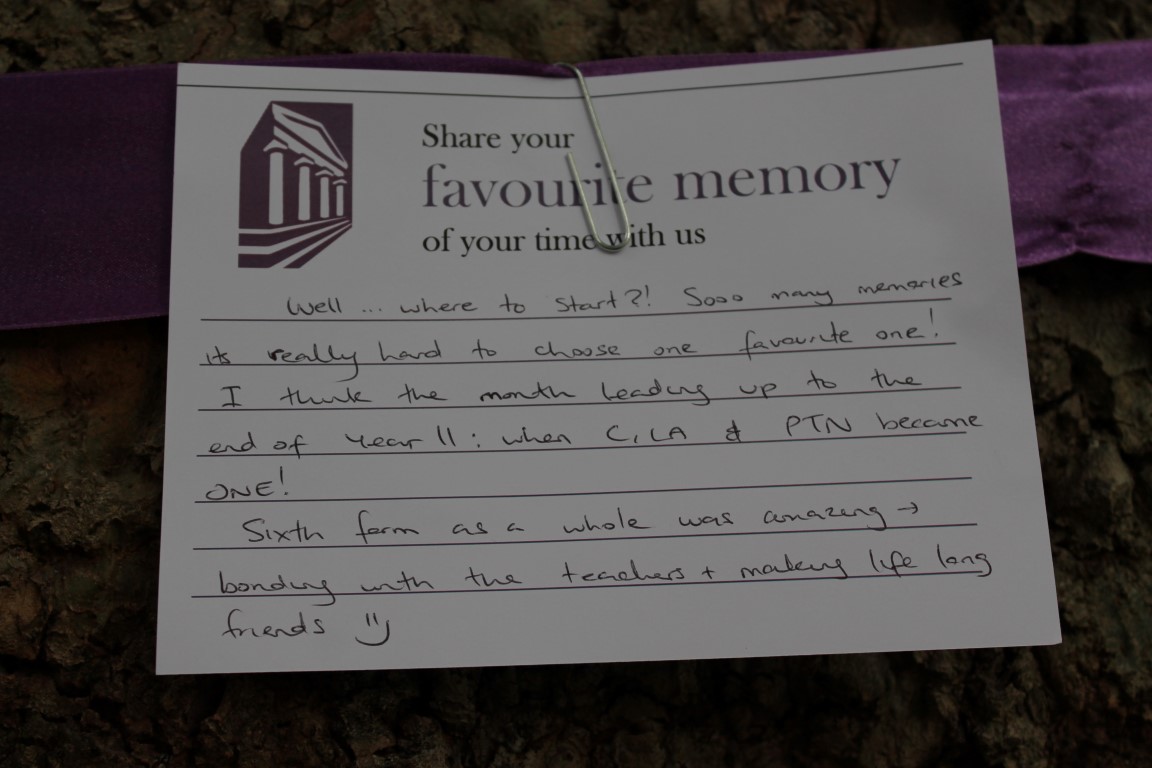 Share your
favourite memory
of your time with us
Well ... where to start?! Sooo many memories
its really hard to choose one favourite one!
I think the month leading up to the
end of Year 11: when C, LA & PTN became
ONE!
Sixth form as a whole was amazing →
bonding with the teachers + making life long
friends :)